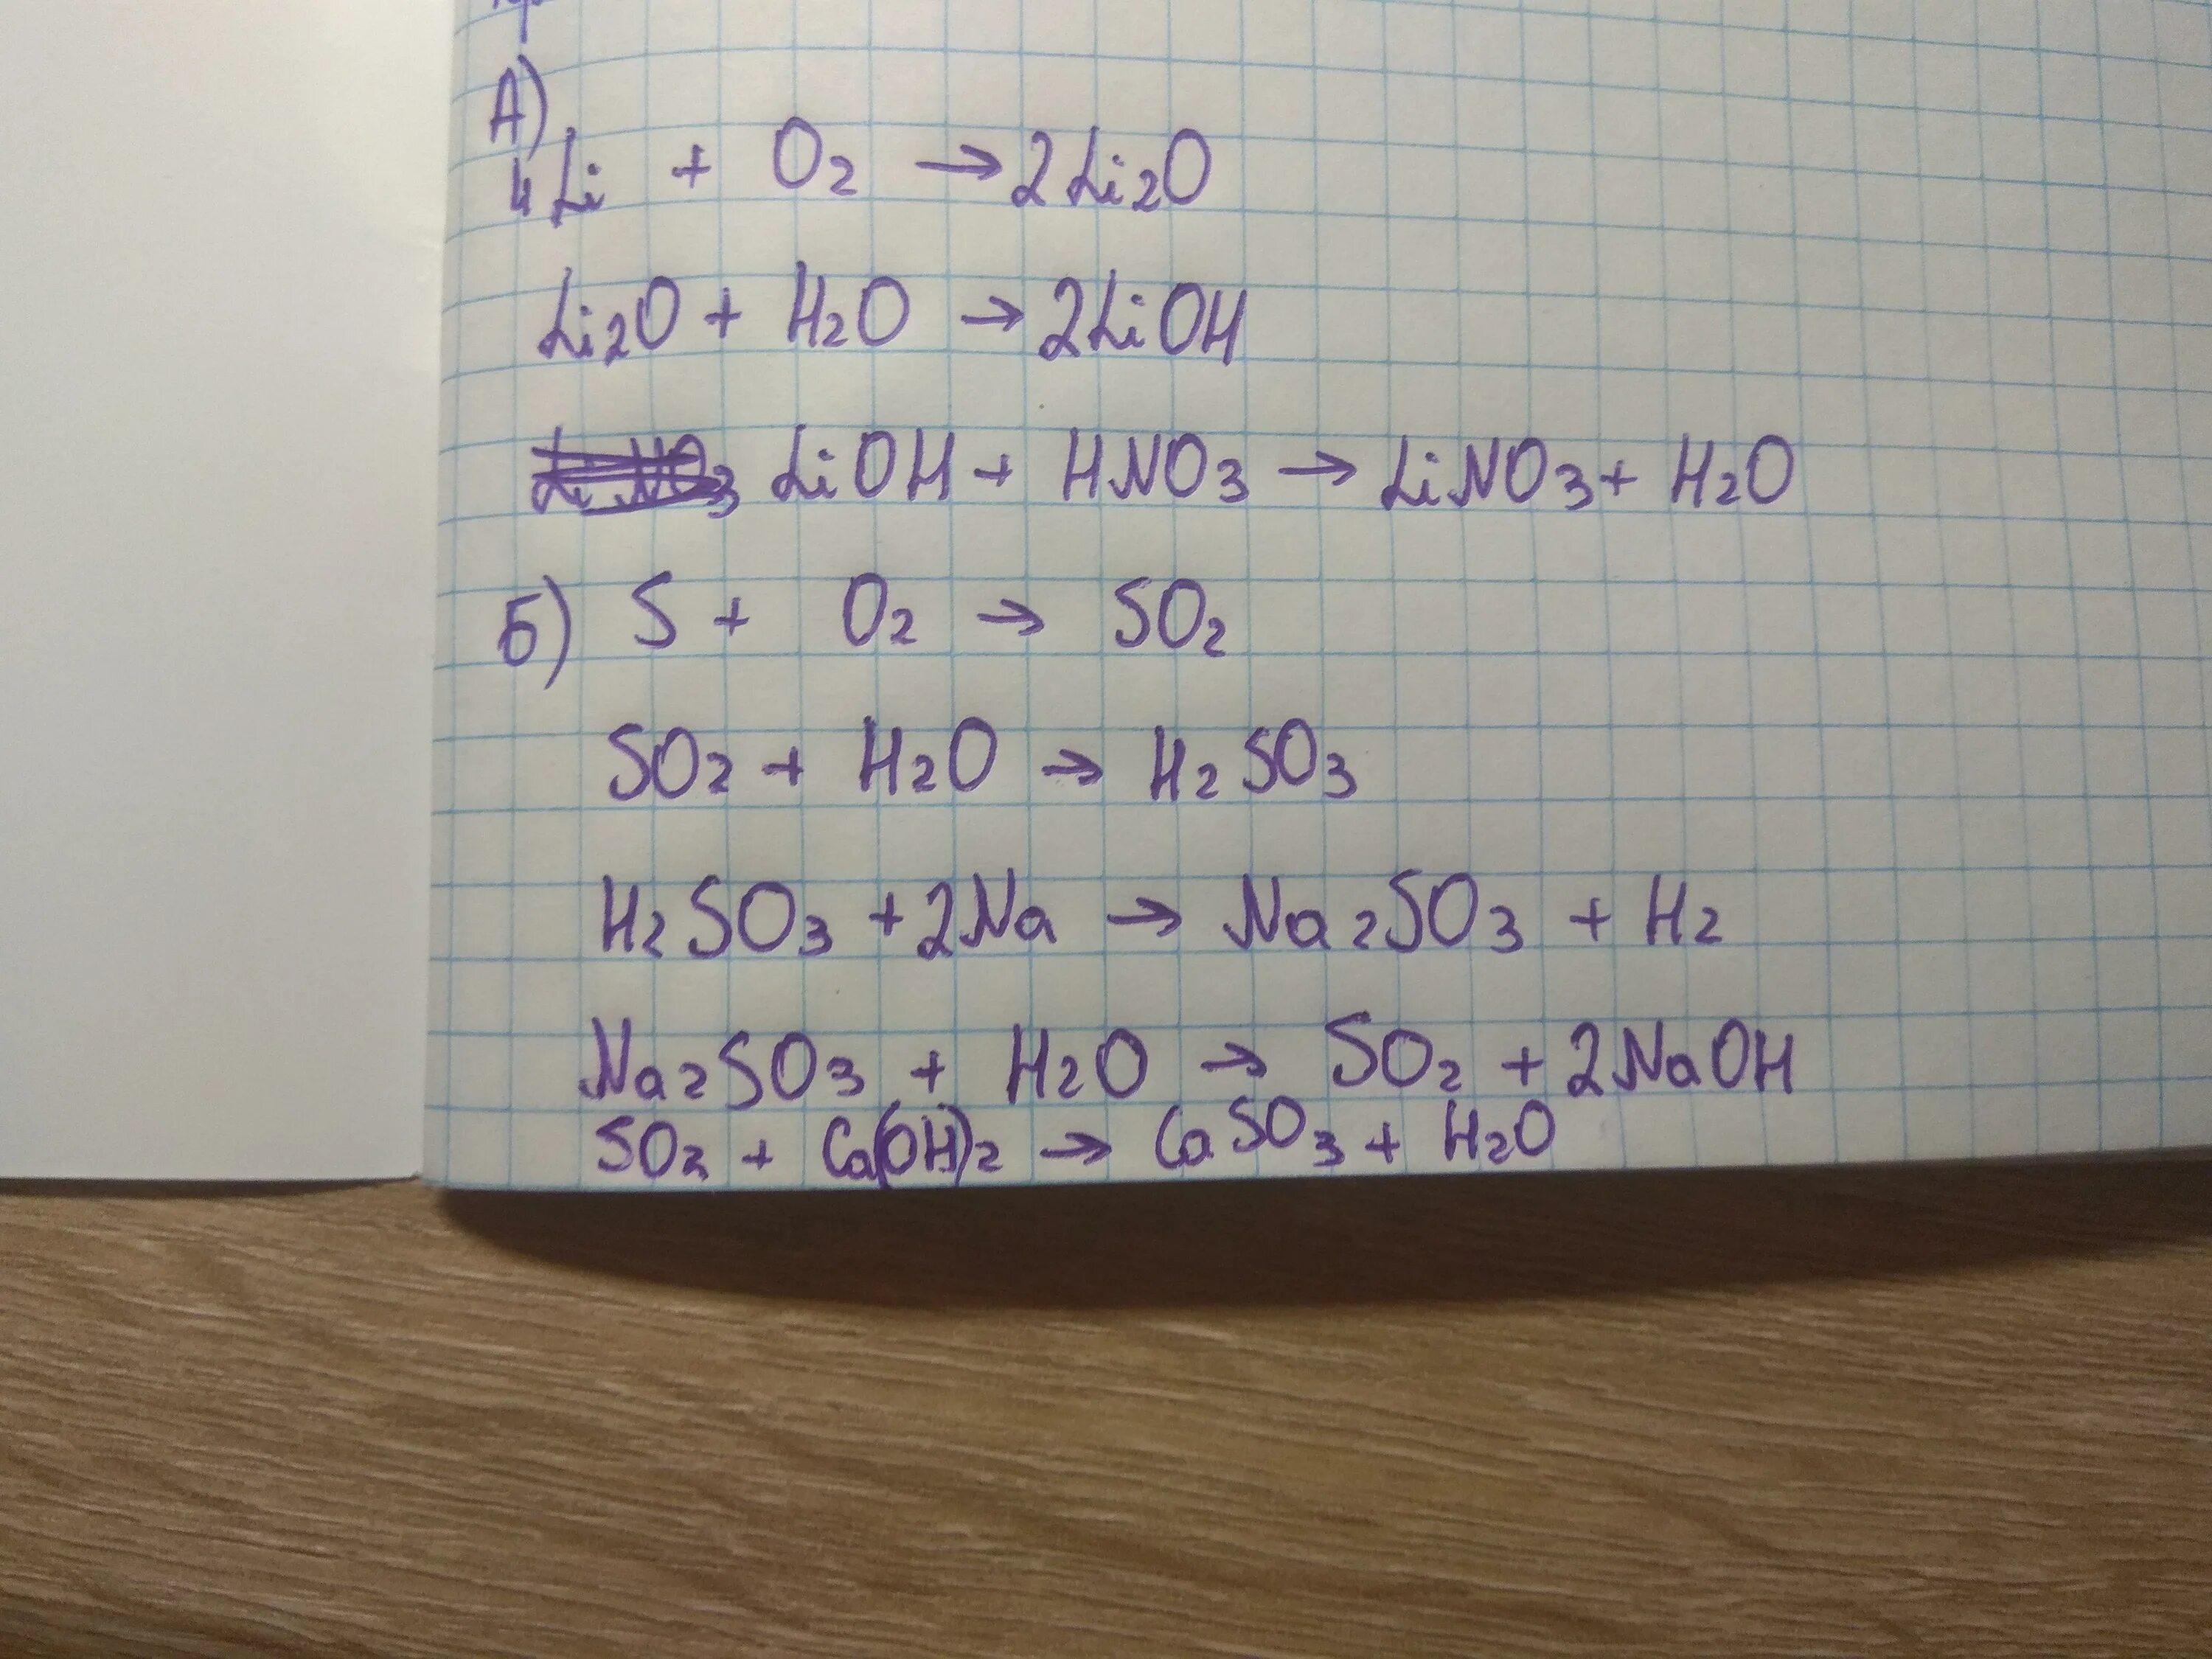 А)
4Li + O₂ → 2Li₂O
Li₂O + H₂O → 2LiOH
LiOH + HNO₃ → LiNO₃ + H₂O
Б) S + O₂ → SO₂
SO₂ + H₂O → H₂SO₃
H₂SO₃ + 2Na → Na₂SO₃ + H₂
Na₂SO₃ + H₂O → SO₂ + 2NaOH
SO₂ + Ca(OH)₂ → CaSO₃ + H₂O